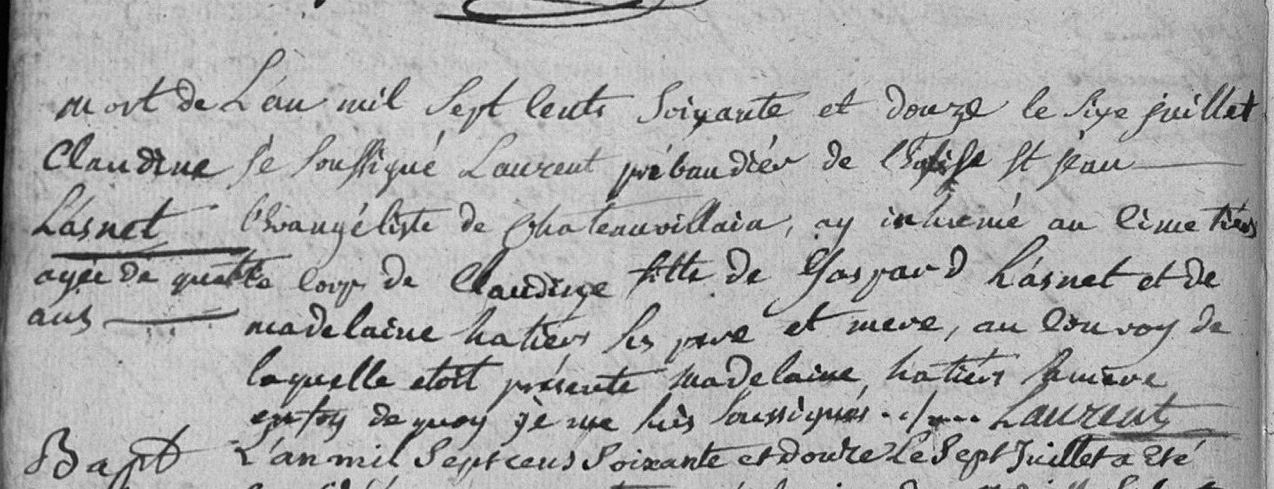 mort de L'an mil sept cents soixante et douze le sixe juillet
Claudine je soussigné Laurent prébandiér de l'église st jéan
Lásnet l'évangéliste de Chateauvillain, ay inhumé au cimetiere
agée de quattre corps de Claudine fille de Gaspard Lásnet et de
ans madelaine hatiers ses pere et mere, au convoy de
laquelle etoit présente madelaine hatiers sa mere
en foy de quoy je me suis soussignés Laurent
Bapt L'an mil Sept cens Soixante et douze Le Sept Juillet a eté